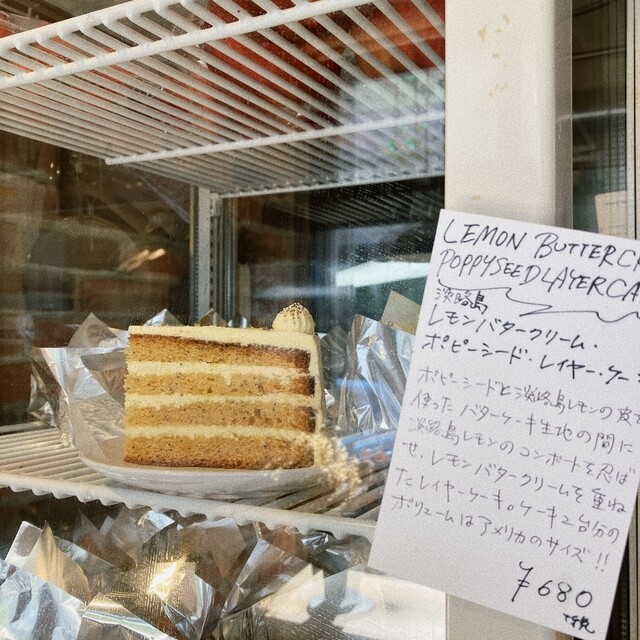 LEMON BUTTERC
POPPYSEED LAYER CA
淡路島
レモンバタークリーム・
ポピーシード・レイヤー・ケー
ポピーシードと淡路島レモンの皮を
使ったバターケーキ生地の間に
淡路島レモンのコンポートを忍ば
せ、レモンバタークリームを重ね
たレイヤーケーキ。ケーキ2台分の
ボリュームはアメリカのサイズ!!
¥680